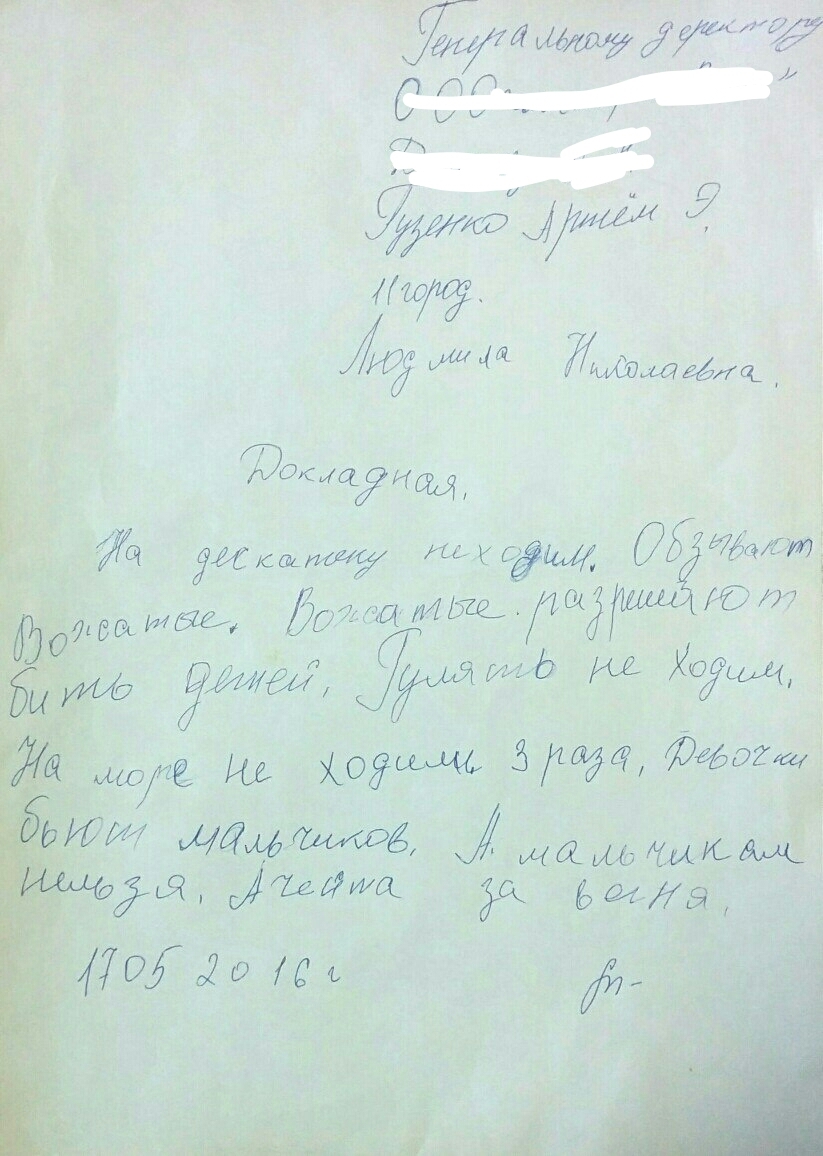 Генеральному деректору
ООО "
Гузенко Артём Э.
11город.
Людмила Николаевна.
Докладная.
На дескатеку неходим. Обзывают
Вожатые. Вожатые разрешают
бить детей. Гулять не ходим.
На море не ходили 3 раза, Девочки
бьют мальчиков. А мальчикам
нельзя. Ачейта за
1705 2016 г